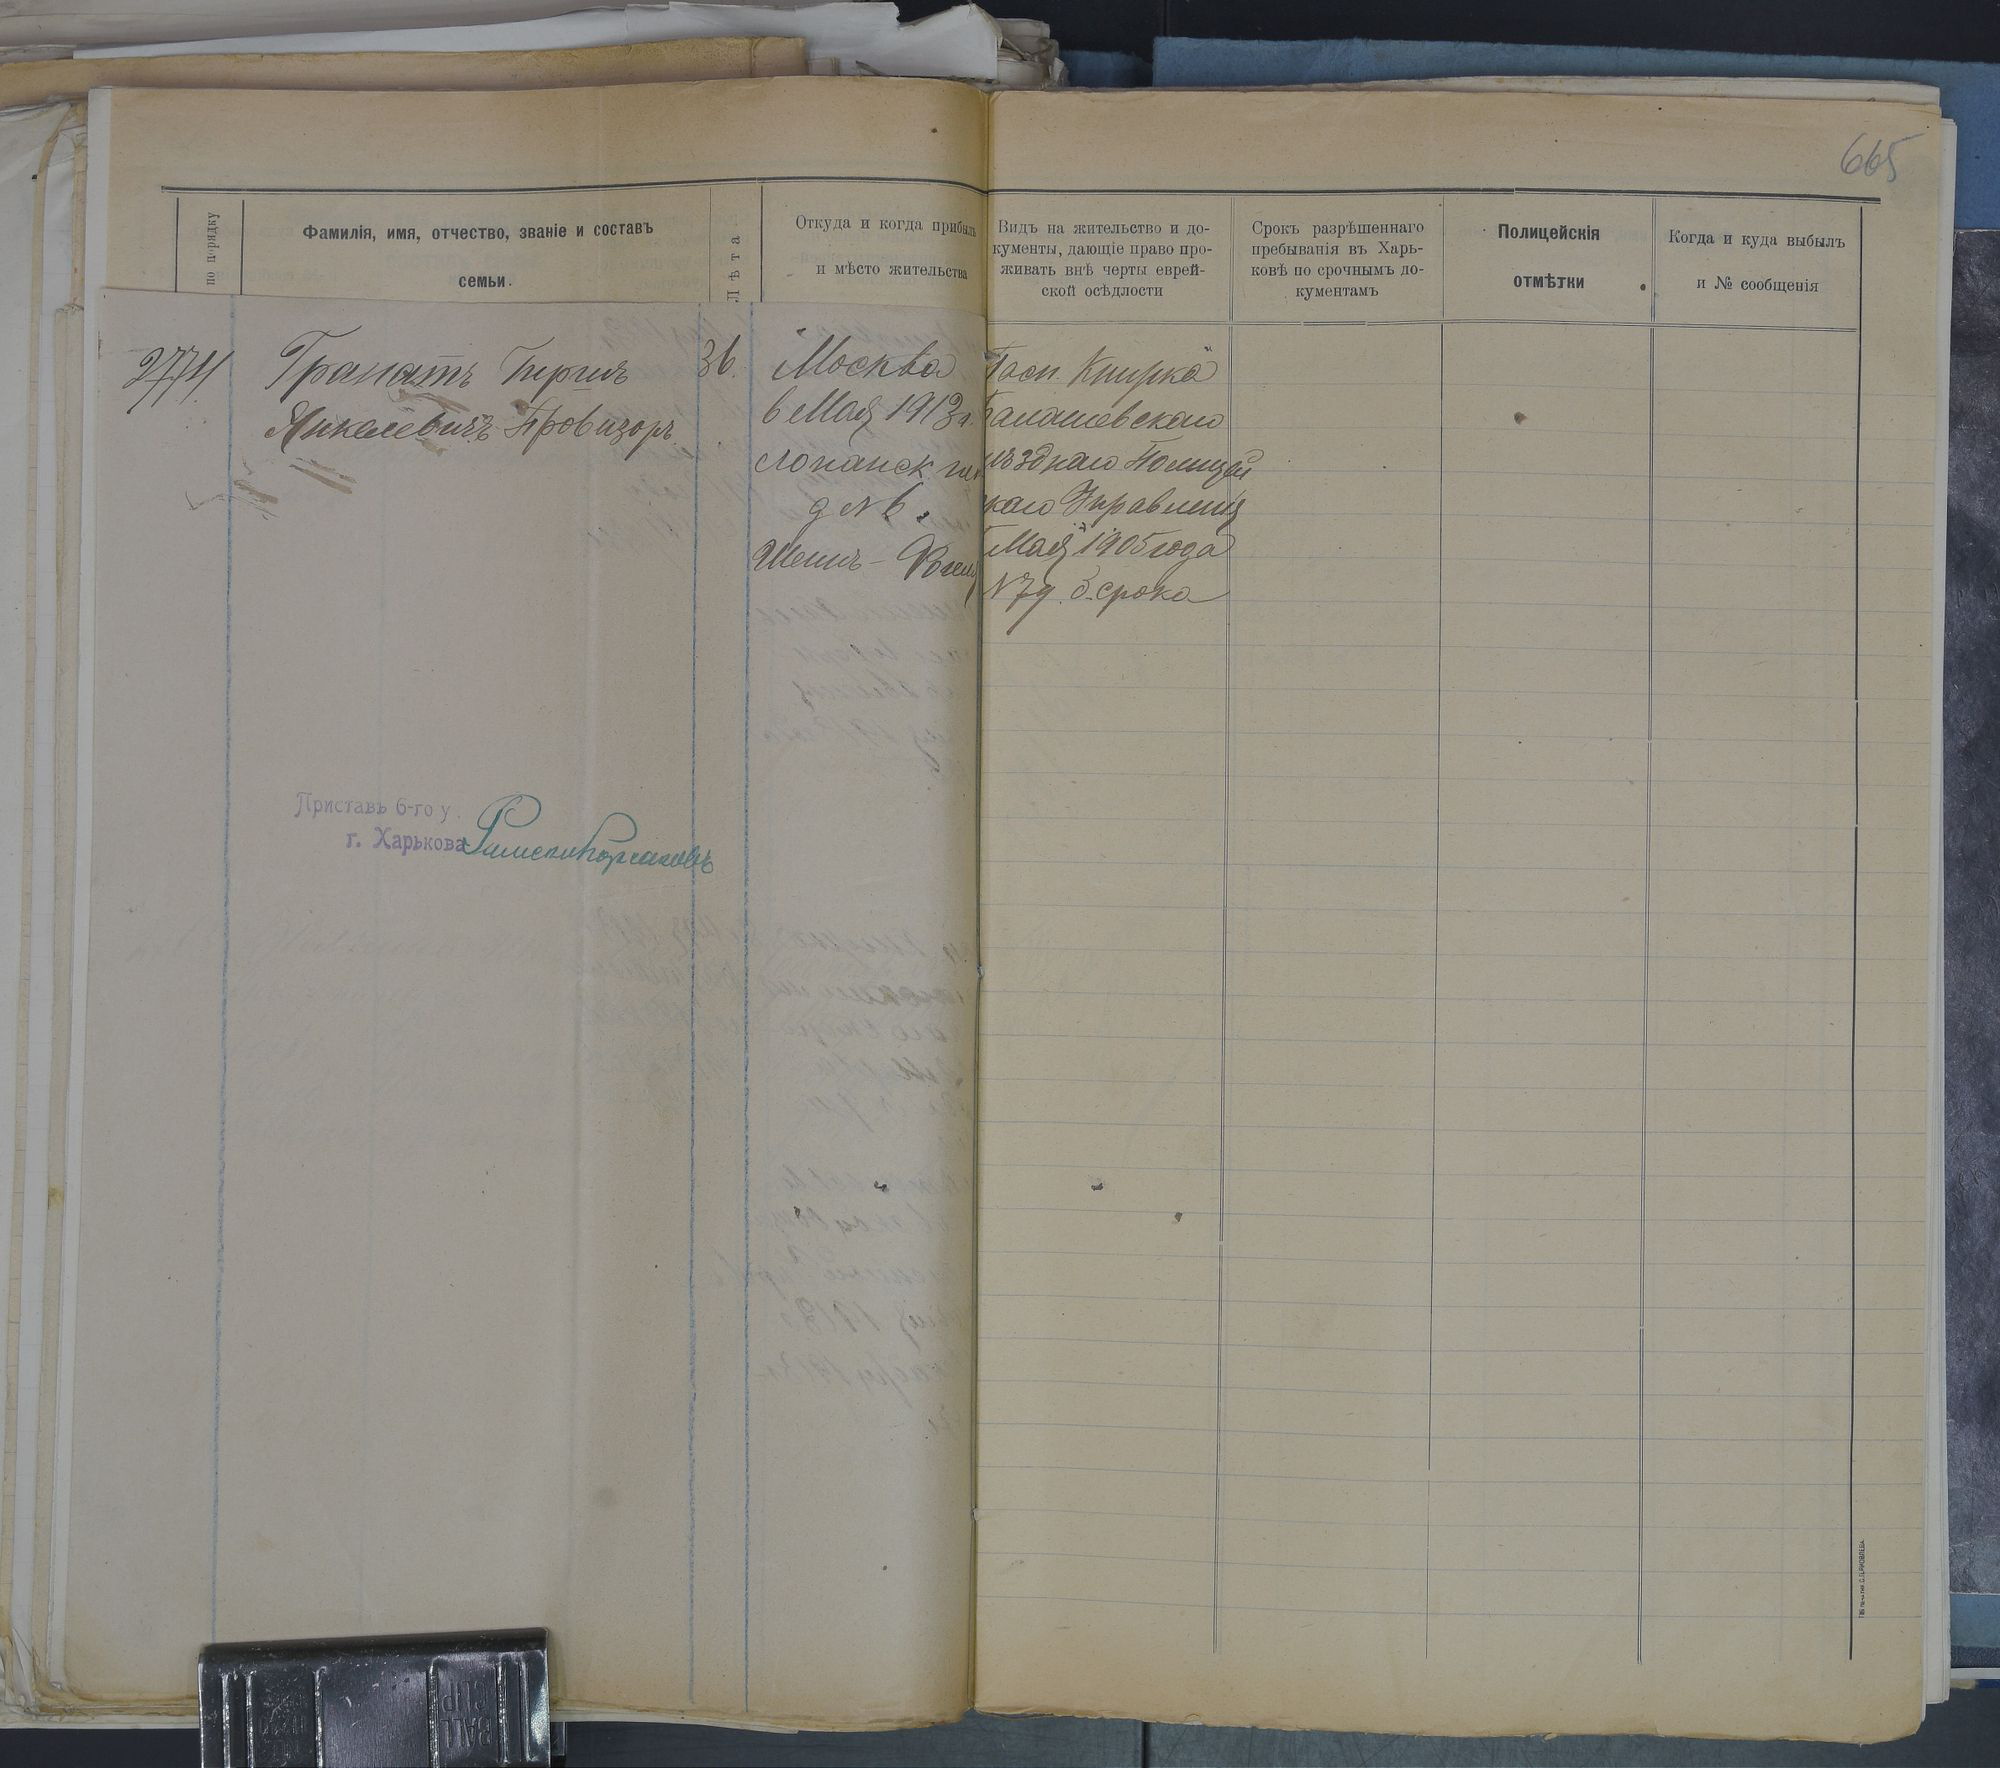 665
по порядку
Фамилія, имя, отчество, званіе и составъ
семьи.
Лѣта
Откуда и когда прибылъ
и мѣсто жительства
Видъ на жительство и до-
кументы, дающіе право про-
живать внѣ черты еврей-
ской осѣдлости
Срокъ разрѣшеннаго
пребыванія въ Харь-
ковѣ по срочнымъ до-
кументамъ
Полицейскія
отмѣтки
Когда и куда выбылъ
и № сообщенія
Гранатъ
Янкелевичъ Провизоръ
36.
Москва
в Маѣ 1913 г.
Лопанск.
д № 6.
Пасп. Книжка
Балашевскаго
уѣзднаго Полицей
скаго Управленія
Мая 1905 года
N 79. б. срока
Приставъ 6-го у.
г. Харькова